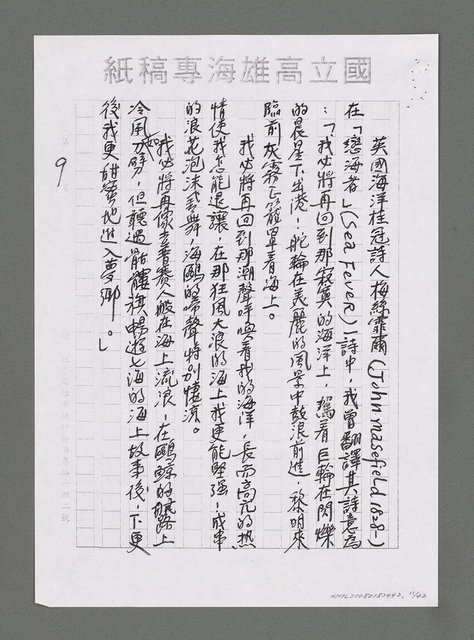 國立高雄海專稿紙
英國海洋桂冠詩人梅絲霏爾(John masefield 1828-)
在「戀海者」(Sea Fever)一詩中，我曾翻譯其詩意為
：「我必將再回到那寂寞的海洋上，駕着巨輪在閃爍
的晨星下出港；舵輪在美麗的風景中鼓浪前進，黎明來
臨前灰霧正籠罩着海上。
我必將再回到那潮聲呼喚着我的海洋，長而高亢的熱
情使我怎能退讓，在那狂風大浪的海上我更能堅強；成串
的浪花泡沫飛舞，海鷗的啼聲特別悽涼。
我必將再像吉普賽人般在海上流浪；在鷗鯨的旅路上
冷風如劈，但聽過骷髏旗暢遊七海的海上故事後，下更
後我更甜蜜地進入夢鄉。」
9
NMTL20080182442, 11/42